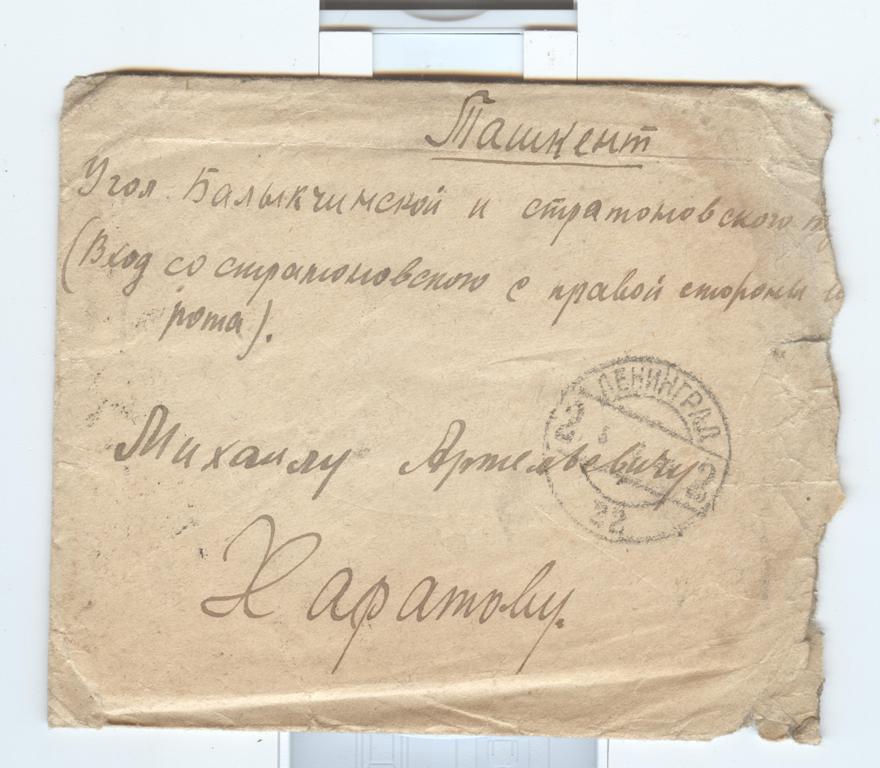 Ташкент
Угол Балыкчинской и стратоновского
(Вход со стратоновского с правой стороны
рота).
Михаилу Артельевичу
Харатову.
ЛЕНИНГРАД
2 2
22